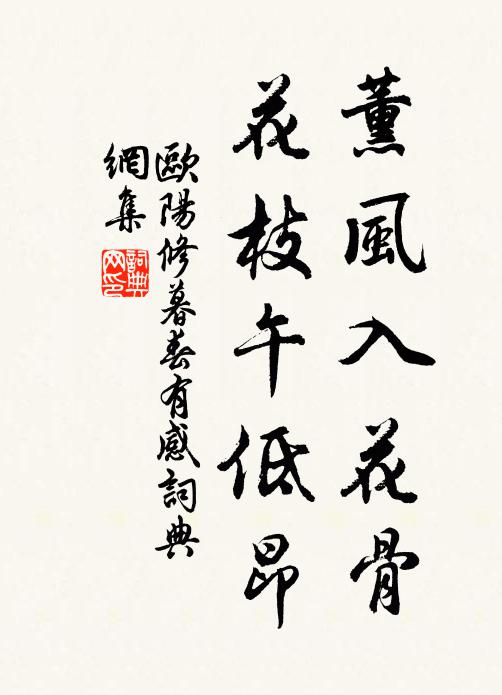 薰風入花骨
花枝午低昂
歐陽修暮春有感詞典
網集
詞典网印